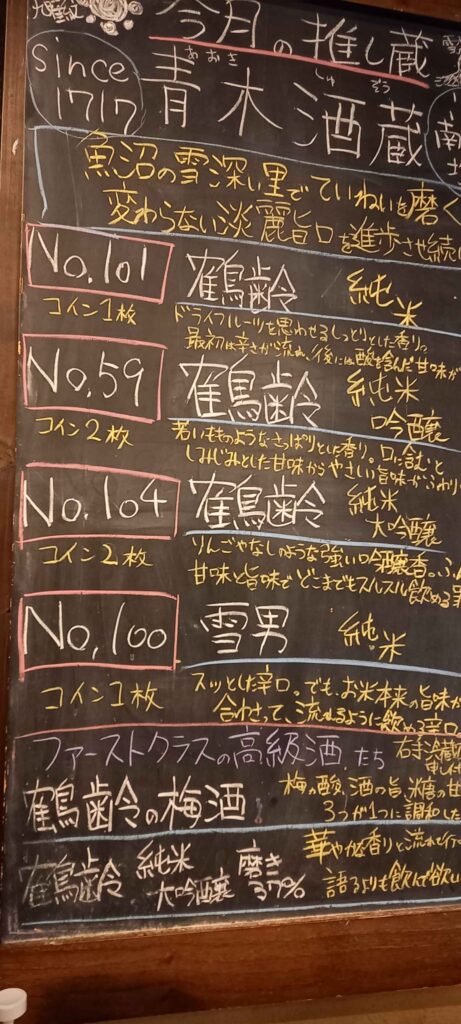 今月の推し蔵
since
1717
あおき しゅぞう
青木酒蔵
魚沼の雪深い里でていねいに磨く
変わらない淡麗旨口を進歩させ続け
No.101
鶴齢 純米
コイン1枚
ドライフルーツを思わせるしっとりとした香り。
最初は辛さが流れ、後には酸を含んだ甘味が
No.59
鶴齢 純米
吟醸
コイン2枚
若いもものようなさっぱりとした香り。口に含むと
しみじみとした甘味からやさしい旨味がふわり
No.104
鶴齢 純米
大吟醸
コイン2枚
りんごやなしのような強い吟醸香。ふ
甘味と旨味でどこまでもスルスル飲める
No.100
雪男 純米
コイン1枚
スッとした辛口。でも、お米本来の旨味が
合わさって、流れるように飲める辛口。
ファーストクラスの高級酒たち
鶴齢の梅酒
梅の酸、酒の旨、糖の甘
3つが1つに調和した
鶴齢 純米
大吟醸
磨き
37%
華やかな香りと流れて行
語るよりも飲めば欲い